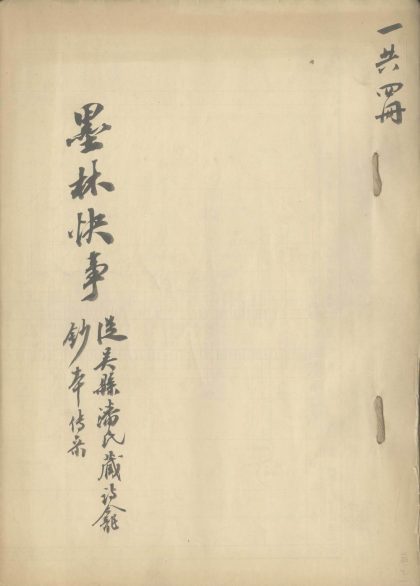 一共四冊
墨林快事
從吳縣潘氏藏詩龕
鈔本傳录